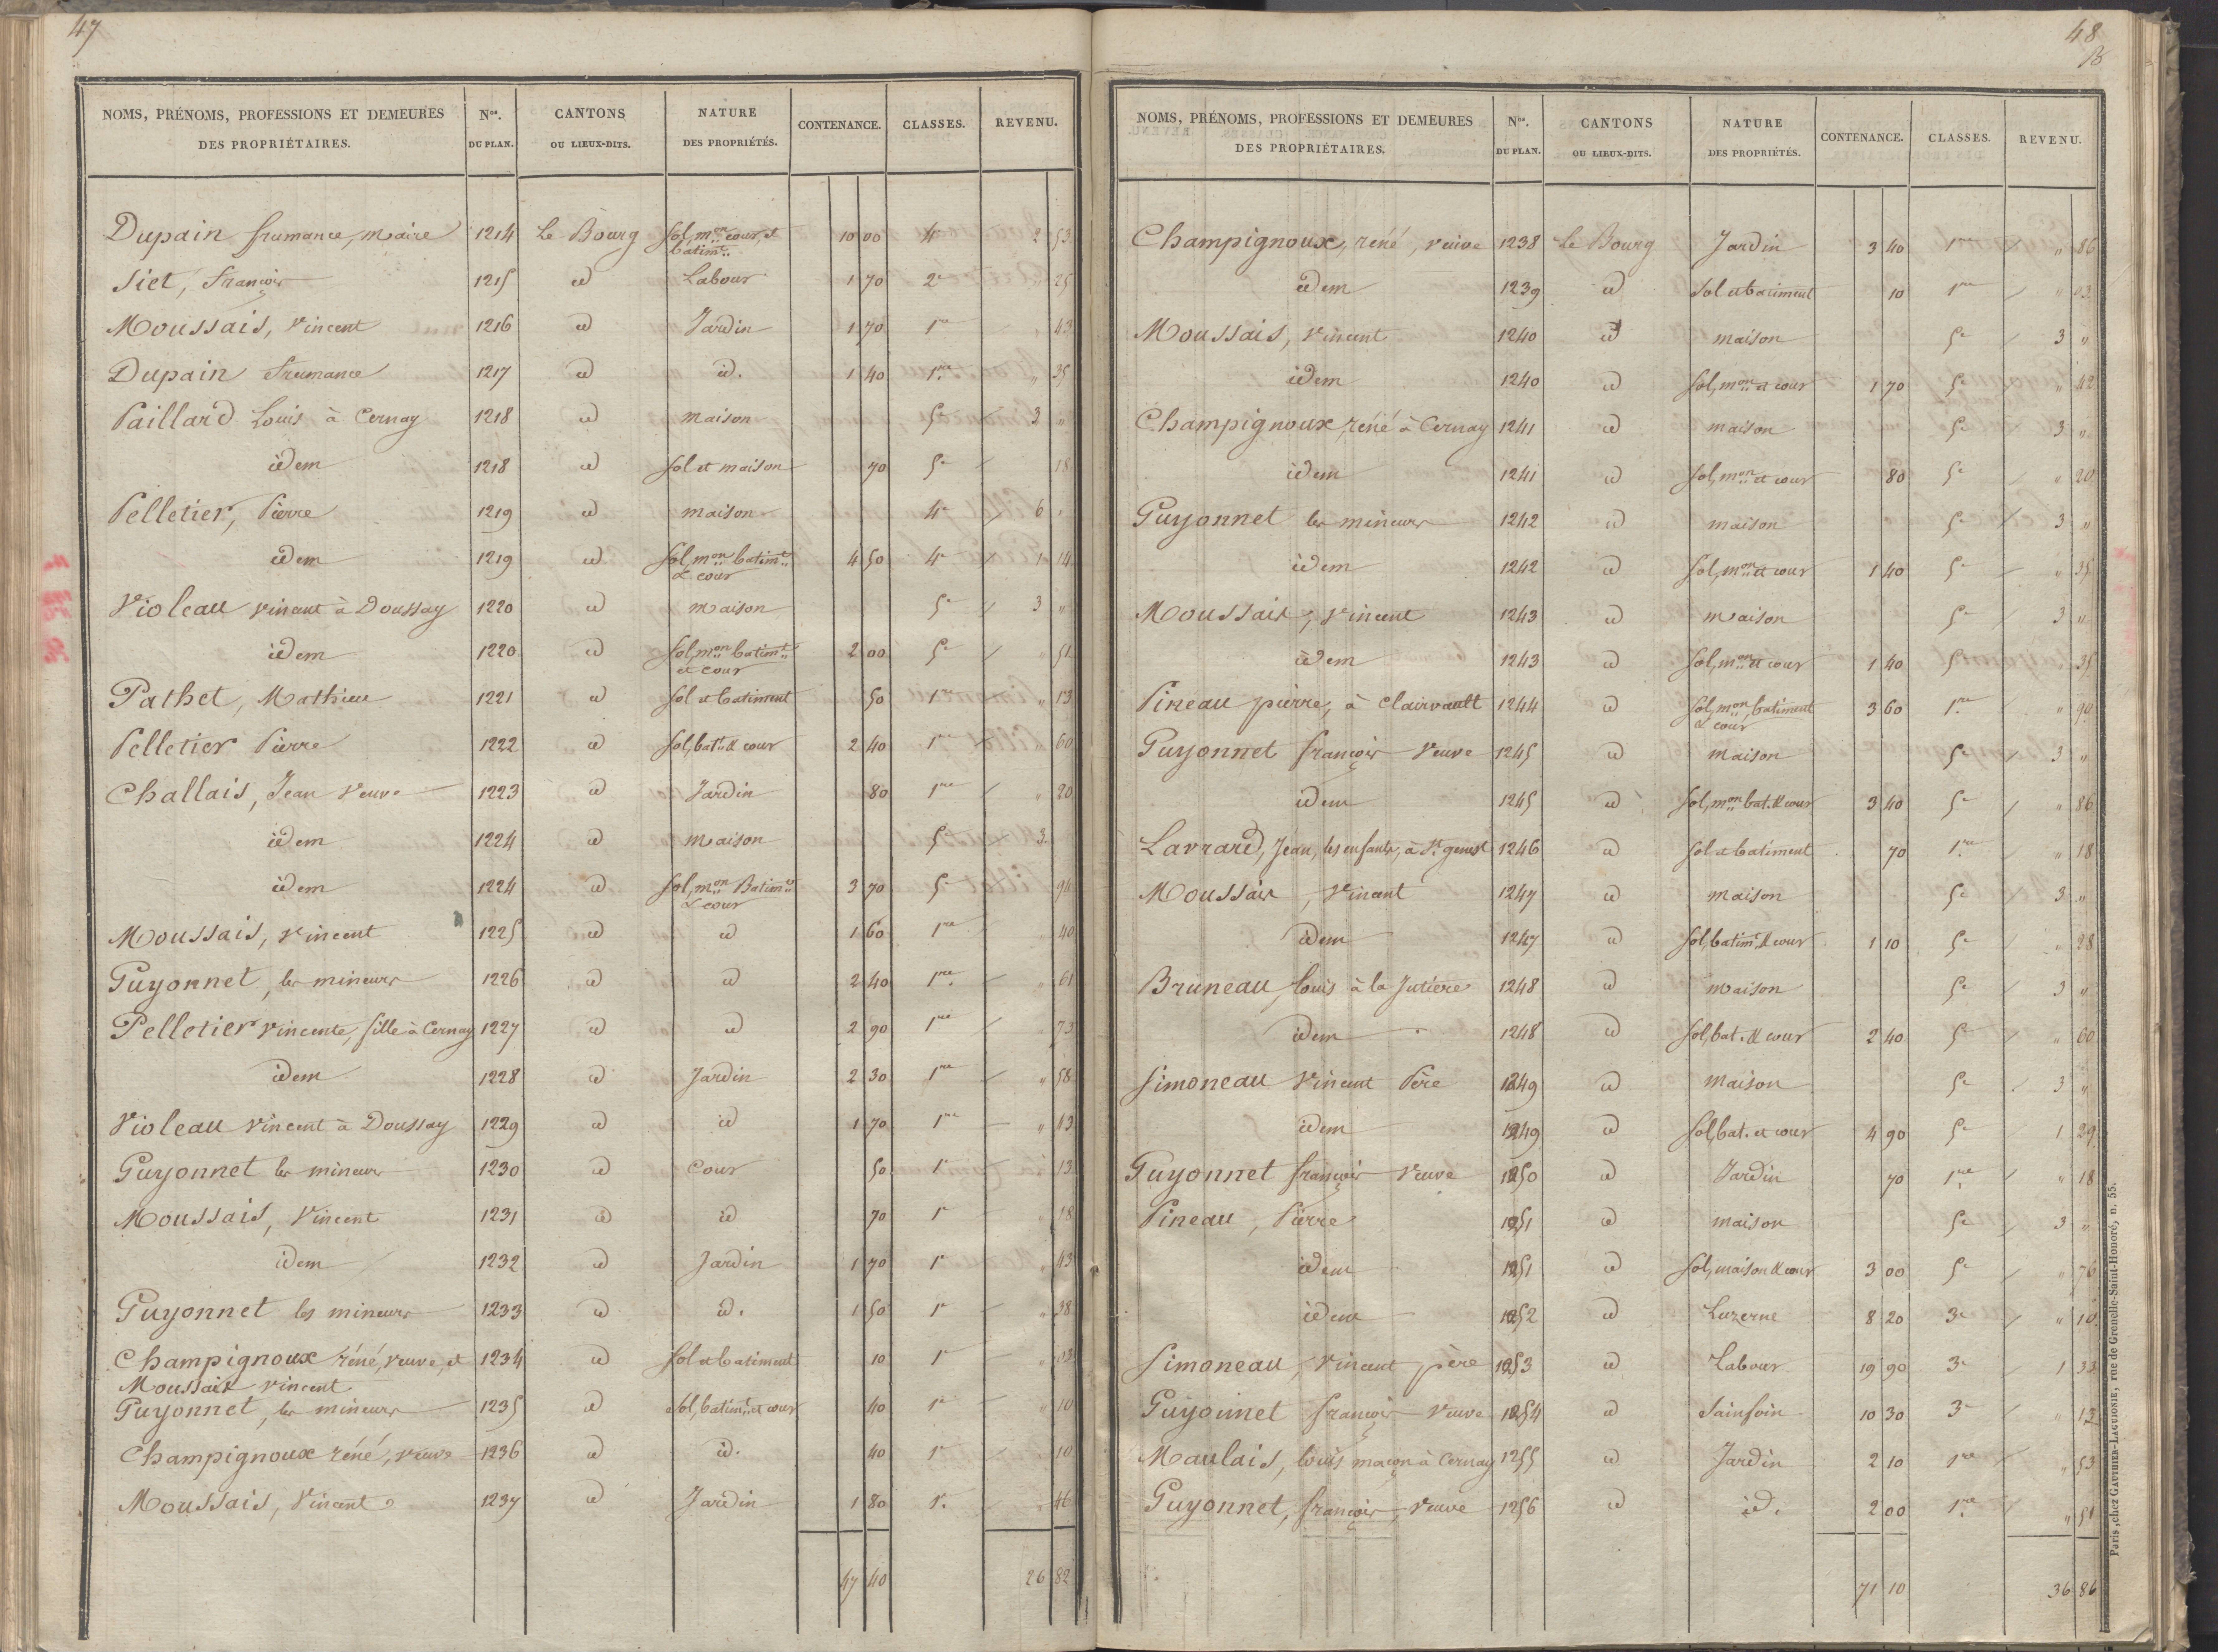 47
NOMS, PRÉNOMS, PROFESSIONS ET DEMEURES DES PROPRIÉTAIRES. Nos. DU PLAN. CANTONS OU LIEUX-DITS. NATURE DES PROPRIÉTÉS. CONTENANCE. CLASSES. REVENU.
Dupain frumance, maire 1214 Le Bourg Sol, mon cour, et batimt 10 00 4e 2 53
Siet, François 1215 id Labour 1 70 2e " 25
Moussais, Vincent 1216 id Jardin 1 70 1re 43
Dupain frumance 1217 id id. 1 40 1re " 35
Paillard Louis à Cernay 1218 id maison 5e 3 "
idem 1218 id Sol et maison 70 5e 18
Pelletier, Pierre 1219 id maison 4e 6 "
idem 1219 id Sol, mon batimt & cour 4 50 4e 1 14
Violeau vincent à Doussay 1220 id maison 5e 3 "
idem 1220 id Sol, mon batimt et cour 2 00 5e 51
Pathet, Mathieu 1221 id Sol et batiment 50 1re " 13
Pelletier Pierre 1222 id Sol, batt & cour 2 40 1re " 60
Challais, Jean Veuve 1223 id Jardin 80 1re " 20
idem 1224 id maison 5e 3
idem 1224 id Sol, mon Batimt & cour 3 70 5e 94
Moussais, Vincent 1225 id id 1 60 1re 40
Guyonnet, les mineurs 1226 id id 2 40 1re 61
Pelletier Vincente, fille à Cernay 1227 id id 2 90 1re 73
idem 1228 id Jardin 2 30 1re " 58
Violeau Vincent à Doussay 1229 id id 1 70 1re " 43
Guyonnet les mineurs 1230 id Cour 50 1e 13
Moussais, Vincent 1231 id id 70 1e " 18
idem 1232 id Jardin 1 70 1e " 43
Guyonnet les mineurs 1233 id id. 1 50 1e " 38
Champignoux réné, veuve, et 1234 id Sol et batiment 10 1e " 03
Moussais vincent
Guyonnet, les mineurs 1235 id Sol, batimt et cour 40 1e " 10
Champignoux réné, veuve 1236 id id. 40 1e " 10
Moussais, Vincent 1237 id Jardin 1 80 1e. 46
47 40 26 82
48
NOMS, PRÉNOMS, PROFESSIONS ET DEMEURES DES PROPRIÉTAIRES. Nos. DU PLAN. CANTONS OU LIEUX-DITS. NATURE DES PROPRIÉTÉS. CONTENANCE. CLASSES. REVENU.
Champignoux, réné, veuve 1238 Le Bourg Jardin 3 40 1re " 86
idem 1239 id Sol et batiment 10 1re " 03
Moussais, Vincent 1240 id maison 5e 3 "
idem 1240 id Sol, mon et cour 1 70 5e " 42
Champignoux, réné à Cernay 1241 id maison 5e 3 "
idem 1241 id Sol, mon et cour 80 5e " 20
Guyonnet les mineurs 1242 id maison 5e 3 "
idem 1242 id Sol, mon et cour 1 40 5e " 35
Moussais, Vincent 1243 id maison 5e 3 "
idem 1243 id Sol, mon et cour 1 40 5e " 35
Pineau pierre, à Clairvault 1244 id Sol, mon, batiment & cour 3 60 1re " 90
Guyonnet françois Veuve 1245 id maison 5e 3 "
idem 1245 id Sol, mon bat. & cour 3 40 5e " 86
Lavrard, Jean, les enfants, à St genest 1246 id Sol et batiment 70 1re " 18
Moussais, Vincent 1247 id maison 5e 3 "
idem 1247 id Sol, batimt & cour 1 10 5e " 28
Bruneau, louis à la Jutiere 1248 id maison 5e 3 "
idem 1248 id Sol, bat. & cour 2 40 5e " 60
Simoneau Vincent Père 1249 id maison 5e 3 "
idem 1249 id Sol, bat. et cour 4 90 5e 1 29
Guyonnet françois Veuve 1250 id Jardin 70 1re " 18
Pineau, Pierre 1251 id maison 5e 3 "
idem 1251 id Sol, maison & cour 3 00 5e " 76
idem 1252 id Luzerne 8 20 3e " 10
Simoneau, Vincent père 1253 id Labour 19 90 3e 1 33
Guyonnet françois Veuve 1254 id Sainfoin 10 30 3e " 13
Maulais, louis maçon à Cernay 1255 id Jardin 2 10 1re " 53
Guyonnet, françois, Veuve 1256 id id. 2 00 1re " 51
71 10 36 86
Paris, chez GAUTHIER-LAGUIONIE, rue de Grenelle-Saint-Honoré, n. 55.